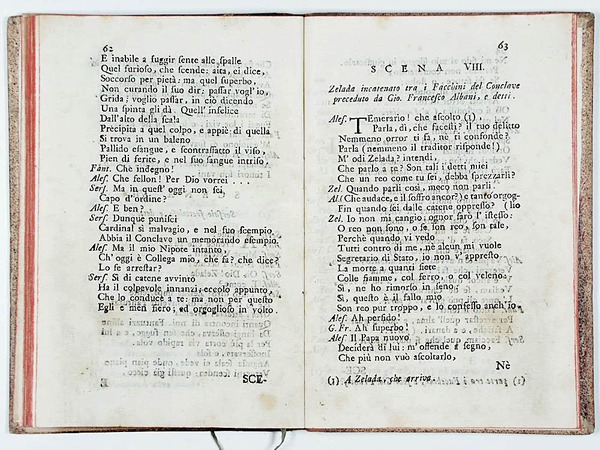 62
E inabile a fuggir sente alle spalle
Quel furioso, che scende: aita, ei dice,
Soccorso per pietà: ma quel superbo,
Non curando il suo dir: passar vogl'io,
Grida; voglio passar, in ciò dicendo
Una spinta gli dà. Quell' infelice
Dall'alto della scala
Precipita a quel colpo, e appiè di quella
Si trova in un baleno
Pallido esangue, e scontraffatto il viso,
Pien di ferite, e nel suo sangue intriso,
Fant. Che indegno!
Ales. Che fellon! Per Dio vorrei ...
Sers. Ma in quest' oggi non sei
Capo d'ordine?
Ales. E ben?
Sers. Dunque punisci
Cardinal sì malvagio, e nel suo scempio
Abbia il Conclave un memorando esempio.
Ales. Ma il mio Nipote intanto,
Ch' oggi è Collega mio, che fa? che dice?
Lo fe arrestar?
Sers. Sì di catene avvinto
Ha il colpevole innanzi, eccolo appunto,
Che lo conduce a te: ma non per questo
Egli è men fiero, ed orgoglio in volto.
SCE-
63
SCENA VIII.
Zelada incatenato tra i Facchini del Conclave
preceduto da Gio. Francesco Albani, e detti.
Ales. TEmerario! che ascolto (1),
Parla, dì, che facesti? il tuo delitto
Nemmeno orror ti fa, nè ti confonde?
Parla (nemmeno il traditor risponde!)
M' odi Zelada? intendi,
Che parlo a te? Son tali i detti miei
Che un reo come tu sei, debba sprezzarli?
Zel. Quando parli così, meco non parli.
Al. (Che audace, e il soffro ancor?) e tanto orgog-
Fin quando sei dalle catene oppresso? (lio
Zel. Io non mi cangio; ognor sarò l' istesso:
O reo non sono, o se son reo, son tale,
Perchè quando vi vedo
Tutti contro di me, nè alcun mi vuole
Segretario di Stato, io non v' appresto
La morte a quanti siete
Colle fiamme, col ferro, o col veleno.
Sì, ne ho rimorso in seno,
Sì, questo è il fallo mio
Son reo pur troppo, e lo confesso anch'io.
Ales. Ah perfido!
G. Fr. Ah superbo!
Ales. Il Papa nuovo
Deciderà di lui: m' offende a segno,
Che più non vuò ascoltarlo,
Nè
(1) A Zelada, che arriva.